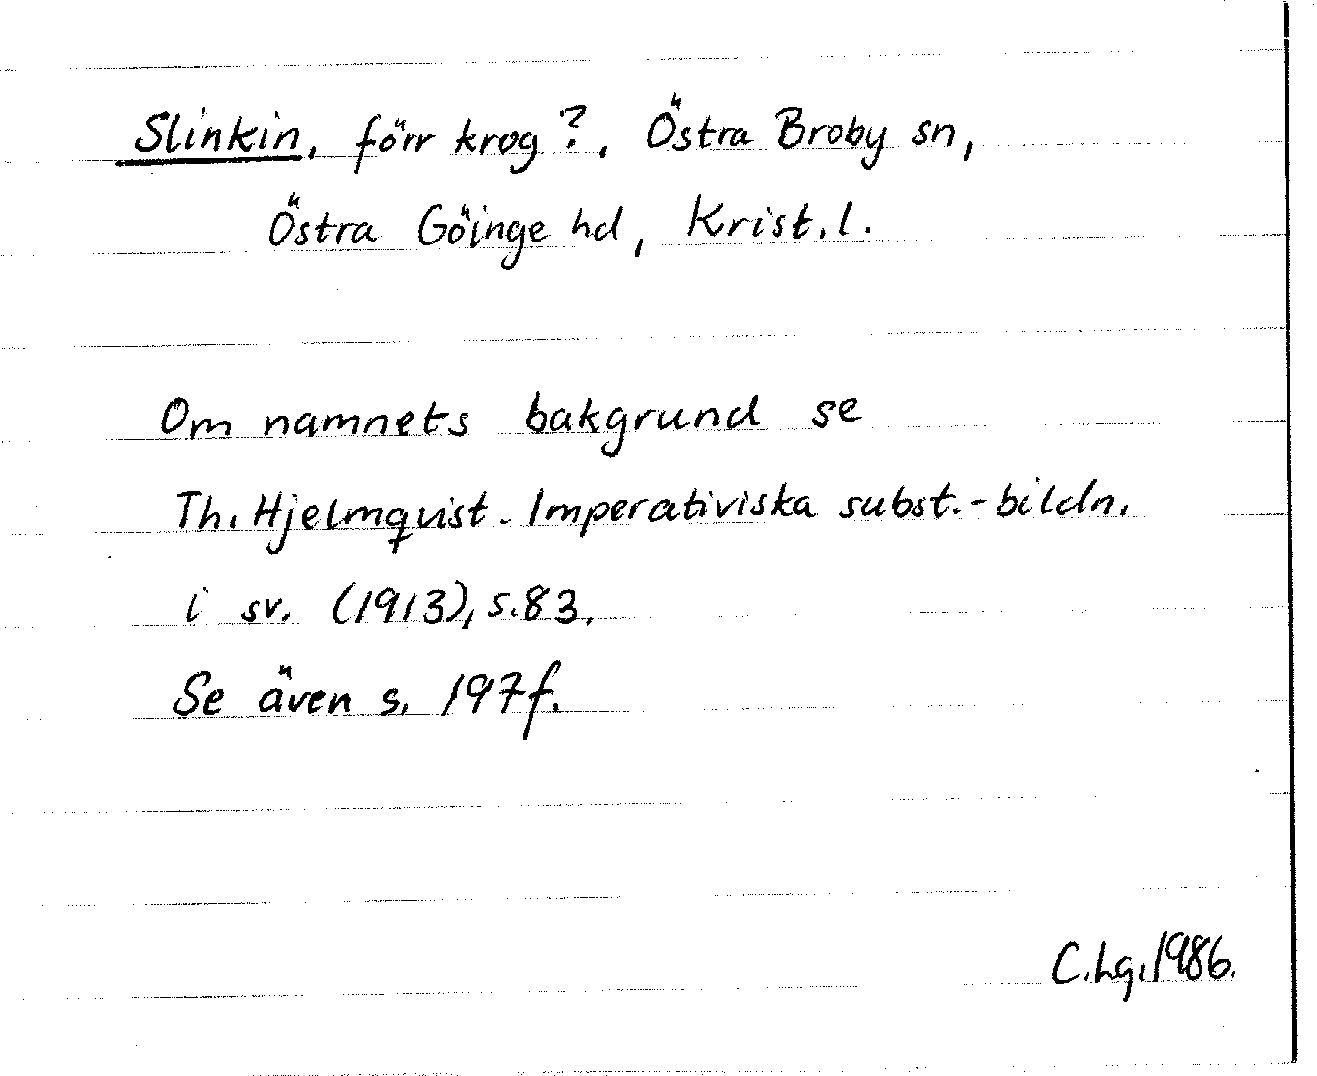 Slinkin, förr krog?, Östra Broby sn,
Östra Göinge hd, Krist.l.
Om namnets bakgrund se
Th. Hjelmquist. Imperativiska subst.-bildn.
i sv. (1913), s.83.
Se även s. 197f.
C.Lg.1986.